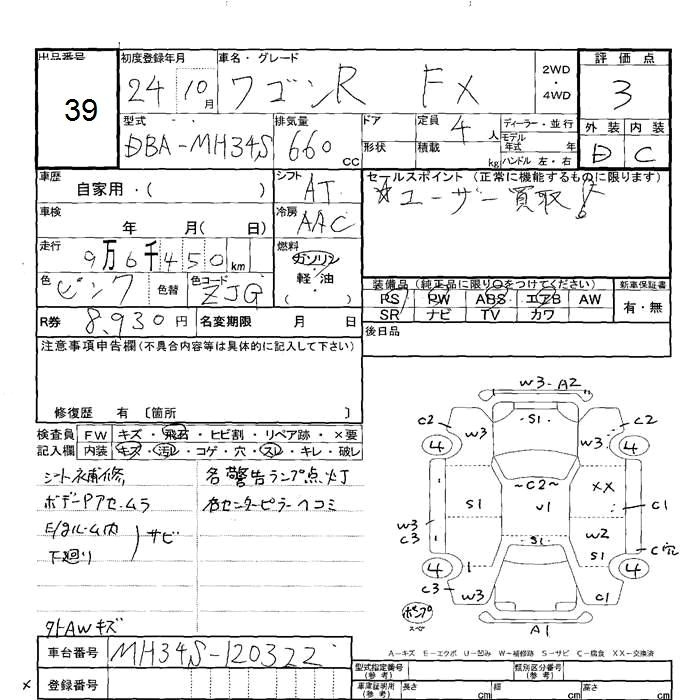 出品番号 39
初度登録年月 24 10月
車名・グレード ワゴンR FX
2WD・4WD
評価点 3
型式 DBA-MH34S
排気量 660 CC
ドア
形状
定員 4人
積載 kg
ディーラー・並行
モデル年式 年
ハンドル 左・右
外装 D
内装 C
車歴 自家用・( )
シフト AT
セールスポイント (正常に機能するものに限ります)
☆ユーザー買取!
車検 年 月( 日)
冷房 AAC
走行 9万6千450km
燃料 ガソリン・軽油・( )
色 ピンク 色替
色コード ZJG
装備品 (純正品に限り○をつけてください)
PS PW ABS エアB AW
SR ナビ TV カワ
新車保証書 有・無
R券 8,930円
名変期限 月 日
後日品
注意事項申告欄(不具合内容等は具体的に記入して下さい)
修復歴 有 〔箇所 〕
検査員記入欄
FW キズ・飛石・ヒビ割・リペア跡・×要
内装 キズ・汚レ・コゲ・穴・スレ・キレ・破レ
シート补補修
ボデーPアセ、ムラ
E/gルーム内
下廻り
サビ
各警告ランプ点灯
右センターピラーヘコミ
外AWキズ
W3-A2
C2 W3 S1 W3 C2
4 4
~C2~ XX
S1 U1 C1
W3 C3 W2
S1 S1 C穴
4 4
C3 W3 C1
ポンプ スペア
A1
A-キズ E-エクボ U-凹み W-補修跡 S-サビ C-腐食 XX-交換済
車台番号 MH34S-120322
× 登録番号
型式指定番号(参考)
類別区分番号(参考)
車庫証明用(参考) 長さ cm 幅 cm 高さ cm